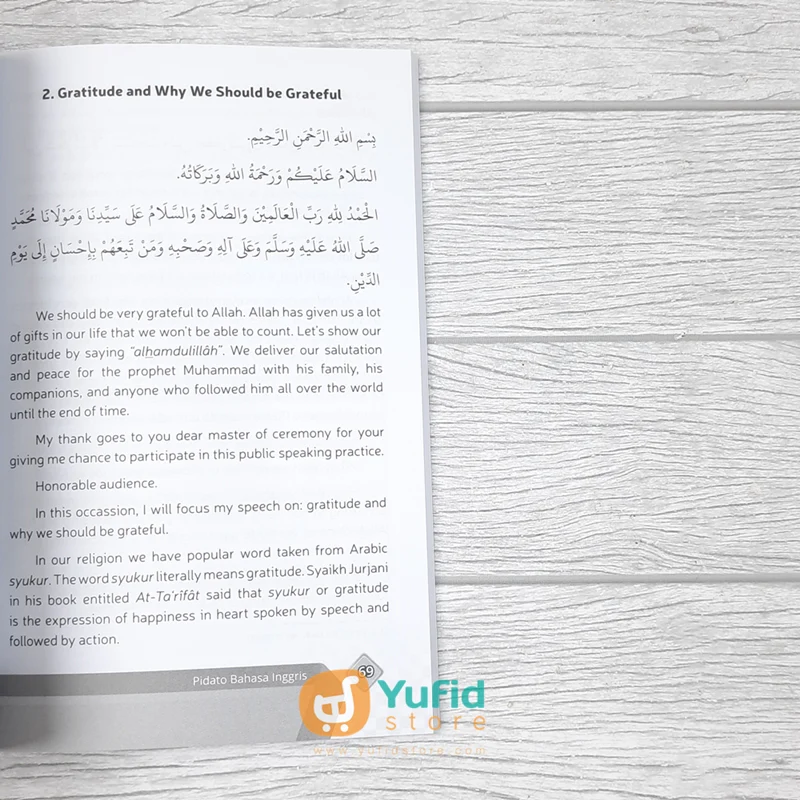 2. Gratitude and Why We Should be Grateful
بِسْمِ اللهِ الرَّحْمَنِ الرَّحِيْمِ.
السَّلَامُ عَلَيْكُمْ وَرَحْمَةُ اللهِ وَبَرَكَاتُهُ.
الْحَمْدُ لِلهِ رَبِّ الْعَالَمِيْنَ وَالصَّلَاةُ وَالسَّلَامُ عَلَى سَيِّدِنَا وَمَوْلَانَا مُحَمَّدٍ
صَلَّى اللهُ عَلَيْهِ وَسَلَّمَ وَعَلَى آلِهِ وَصَحْبِهِ وَمَنْ تَبِعَهُمْ بِإِحْسَانٍ إِلَى يَوْمِ
الدِّيْنِ.
We should be very grateful to Allah. Allah has given us a lot
of gifts in our life that we won't be able to count. Let's show our
gratitude by saying "alhamdulillâh". We deliver our salutation
and peace for the prophet Muhammad with his family, his
companions, and anyone who followed him all over the world
until the end of time.
My thank goes to you dear master of ceremony for your
giving me chance to participate in this public speaking practice.
Honorable audience.
In this occassion, I will focus my speech on: gratitude and
why we should be grateful.
In our religion we have popular word taken from Arabic
syukur. The word syukur literally means gratitude. Syaikh Jurjani
in his book entitled At-Ta'rîfât said that syukur or gratitude
is the expression of happiness in heart spoken by speech and
followed by action.
Pidato Bahasa Inggris
69
Yufid
store
www.yufidstore.com